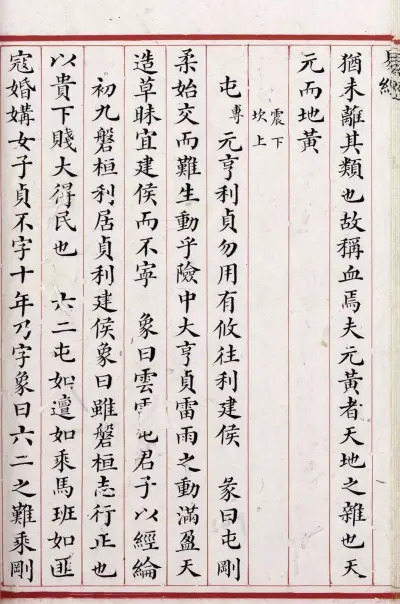 易經
猶未離其類也故稱血焉夫元黃者天地之雜也天
元而地黃
震下
坎上
屯專元亨利貞勿用有攸往利建侯 彖曰屯剛
柔始交而難生動乎險中大亨貞雷雨之動滿盈天
造草昧宜建侯而不寧 象曰雲雷屯君子以經綸
初九磐桓利居貞利建侯象曰雖磐桓志行正也
以貴下賤大得民也 六二屯如邅如乘馬班如匪
寇婚媾女子貞不字十年乃字象曰六二之難乘剛